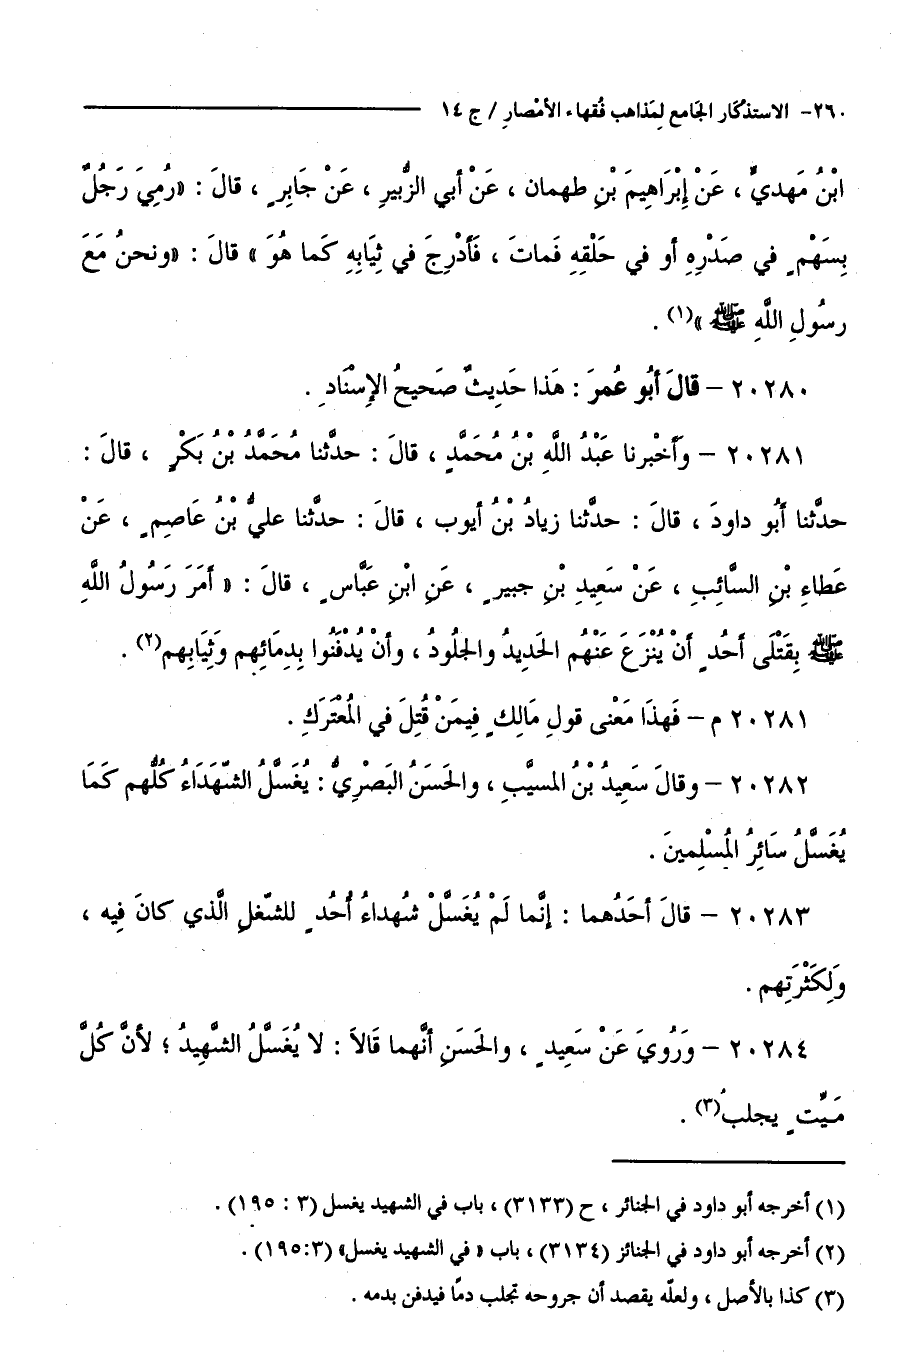 ٢٦٠- الاستذكار الجامع لمذاهب فُقهاء الأمْصارِ / ج ١٤
ابْنُ مَهديٍّ ، عَنْ إِبْرَاهِيمَ بْنِ طهمان ، عَنْ أبي الزُّبيرِ ، عَنْ جَابِرٍ ، قالَ : «رُمِيَ رَجُلٌ
بِسَهْمٍ في صَدْرِهِ أو في حَلْقِهِ فَماتَ ، فَأدْرِجَ في ثِيَابِهِ كَما هُوَ » قالَ : «ونحنُ مَعَ
رسُولِ اللَّهِ ﷺ »(١) .
٢٠٢٨٠ – قالَ أبُو عُمرَ : هَذا حَدِيثٌ صَحيحُ الإِسْنَادِ .
٢٠٢٨١ – وَأَخْبرنا عَبْدُ اللَّهِ بْنُ مُحَمَّدٍ ، قالَ : حدثَّنا مُحَمَّدُ بْنُ بَكْرٍ ، قالَ :
حدثَّنا أبُو داودَ ، قالَ : حدثَّنا زيادُ بْنُ أيوب ، قالَ : حدثَّنا عليُّ بْنُ عَاصِمٍ ، عَنْ
عَطاءِ بْنِ السَّائِبِ ، عَنْ سَعِيدِ بْنِ جبيرٍ ، عَنِ ابْنِ عَبَّاسٍ ، قالَ : « أمَرَ رَسُولُ اللَّهِ
ﷺ بِقَتْلَى أحُدٍ أنْ يُنْزَعَ عَنْهُم الحَديدُ والجلُودُ ، وأنْ يُدْفَنُوا بِدِمَائِهِم وَثِيَابِهم(٢) .
٢٠٢٨١ م – فَهذَا مَعْنى قولِ مَالِكٍ فِيمَنْ قُتِلَ في المُعْتَرَكِ .
٢٠٢٨٢ – وقالَ سَعِيدُ بْنُ المسيَّبِ ، والحَسَنُ البَصْرِيُّ : يُغَسَّلُ الشّهَدَاءُ كُلُّهم كَمَا
يُغَسَّلُ سَائِرُ المُسْلِمينَ .
٢٠٢٨٣ – قالَ أحَدُهما : إنَّما لَمْ يُغَسَّلْ شُهداءُ أُحُدٍ للشّغلِ الَّذي كانَ فِيه ،
وَلِكَثْرَتِهم .
٢٠٢٨٤ – وَرُويَ عَنْ سَعِيدٍ ، والحَسَنِ أنَّهما قَالاَ : لا يُغَسَّلُ الشَّهِيدُ ؛ لأنَّ كُلَّ
مَيِّتٍ يجلبُ(٣) .
(١) أخرجه أبو داود في الجنائر ، ح (٣١٣٣) ، باب في الشهيد يغسل (٣ : ١٩٥) .
(٢) أخرجه أبو داود في الجنائز (٣١٣٤) ، باب « في الشهيد يغسل» (٣:١٩٥) .
(٣) كذا بالأصل ، ولعلّه يقصد أن جروحه تجلب دمًا فيدفن بدمه .